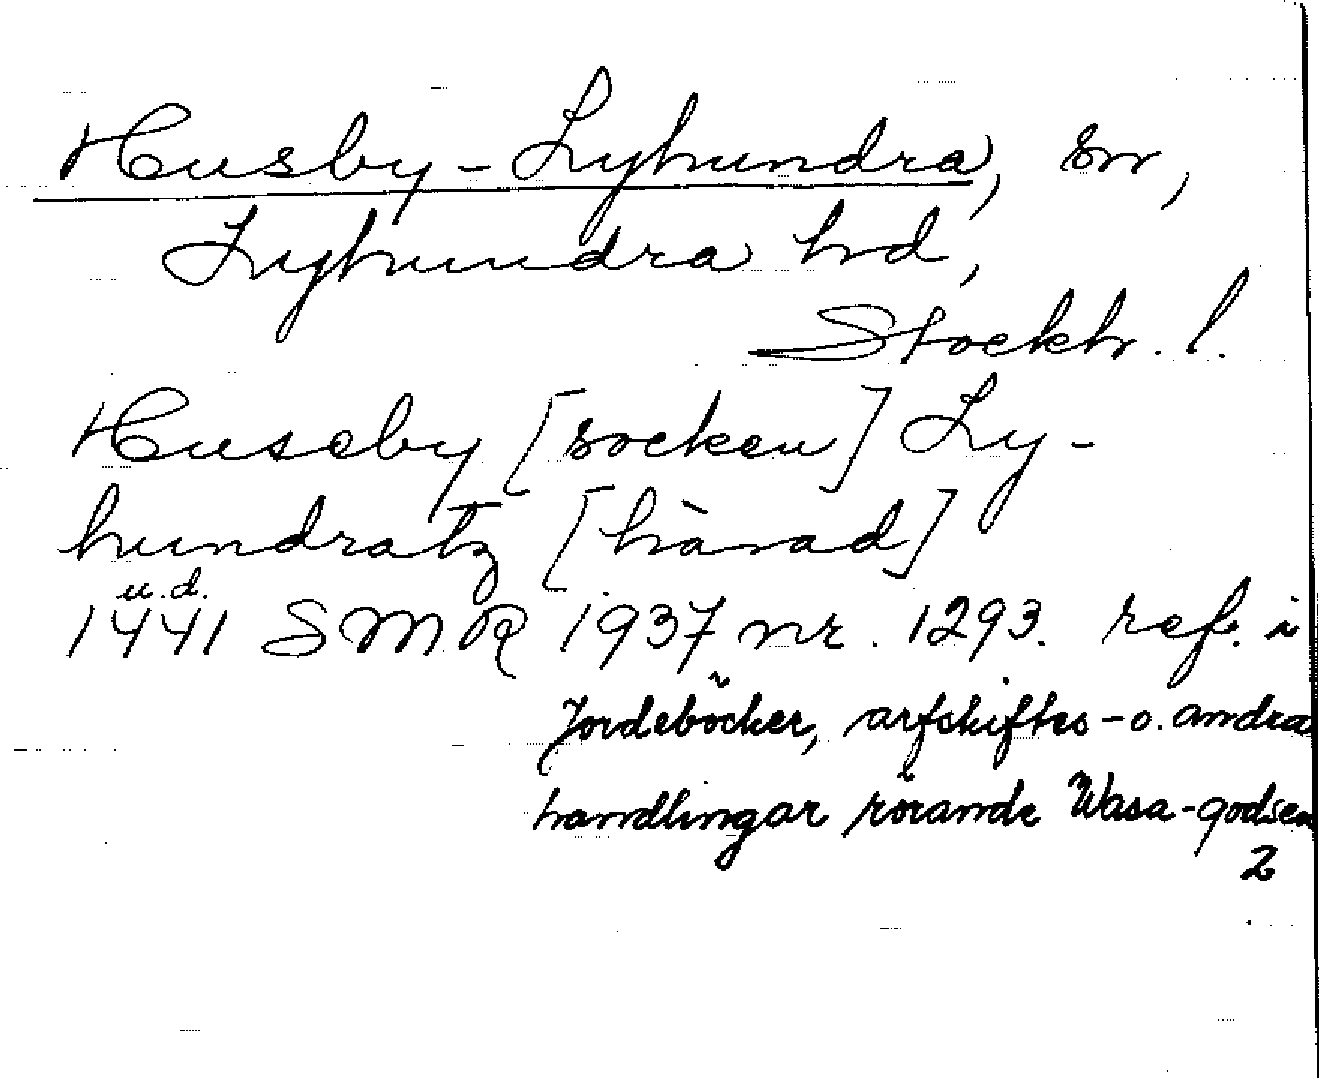 Husby-Lyhundra, sn,
Lyhundra hd,
Stockh. l.
Huseby [socken] Ly-
hundratz [härad]
u.d.
1441 SMR 1937 nr. 1293. ref. i
Jordeböcker, arfskiftes- o. andra
handlingar rörande Wasa-godsen
2